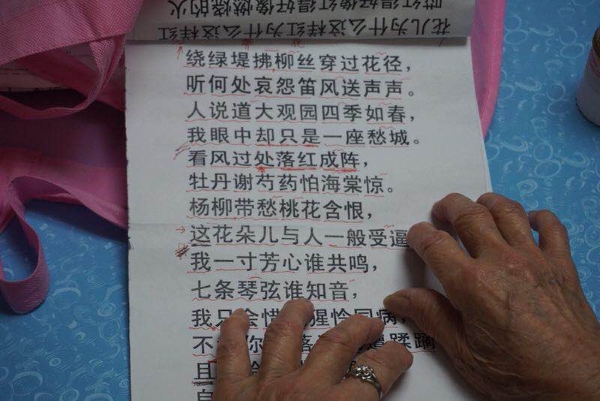 花儿为什么这样红
红得好像燃烧的火
绕绿堤拂柳丝穿过花径，
听何处哀怨笛风送声声。
人说道大观园四季如春，
我眼中却只是一座愁城。
看风过处落红成阵，
牡丹谢芍药怕海棠惊。
杨柳带愁桃花含恨，
这花朵儿与人一般受逼
我一寸芳心谁共鸣，
七条琴弦谁知音，
我只会惜惺怜同病，
不你落遭蹂躏
且